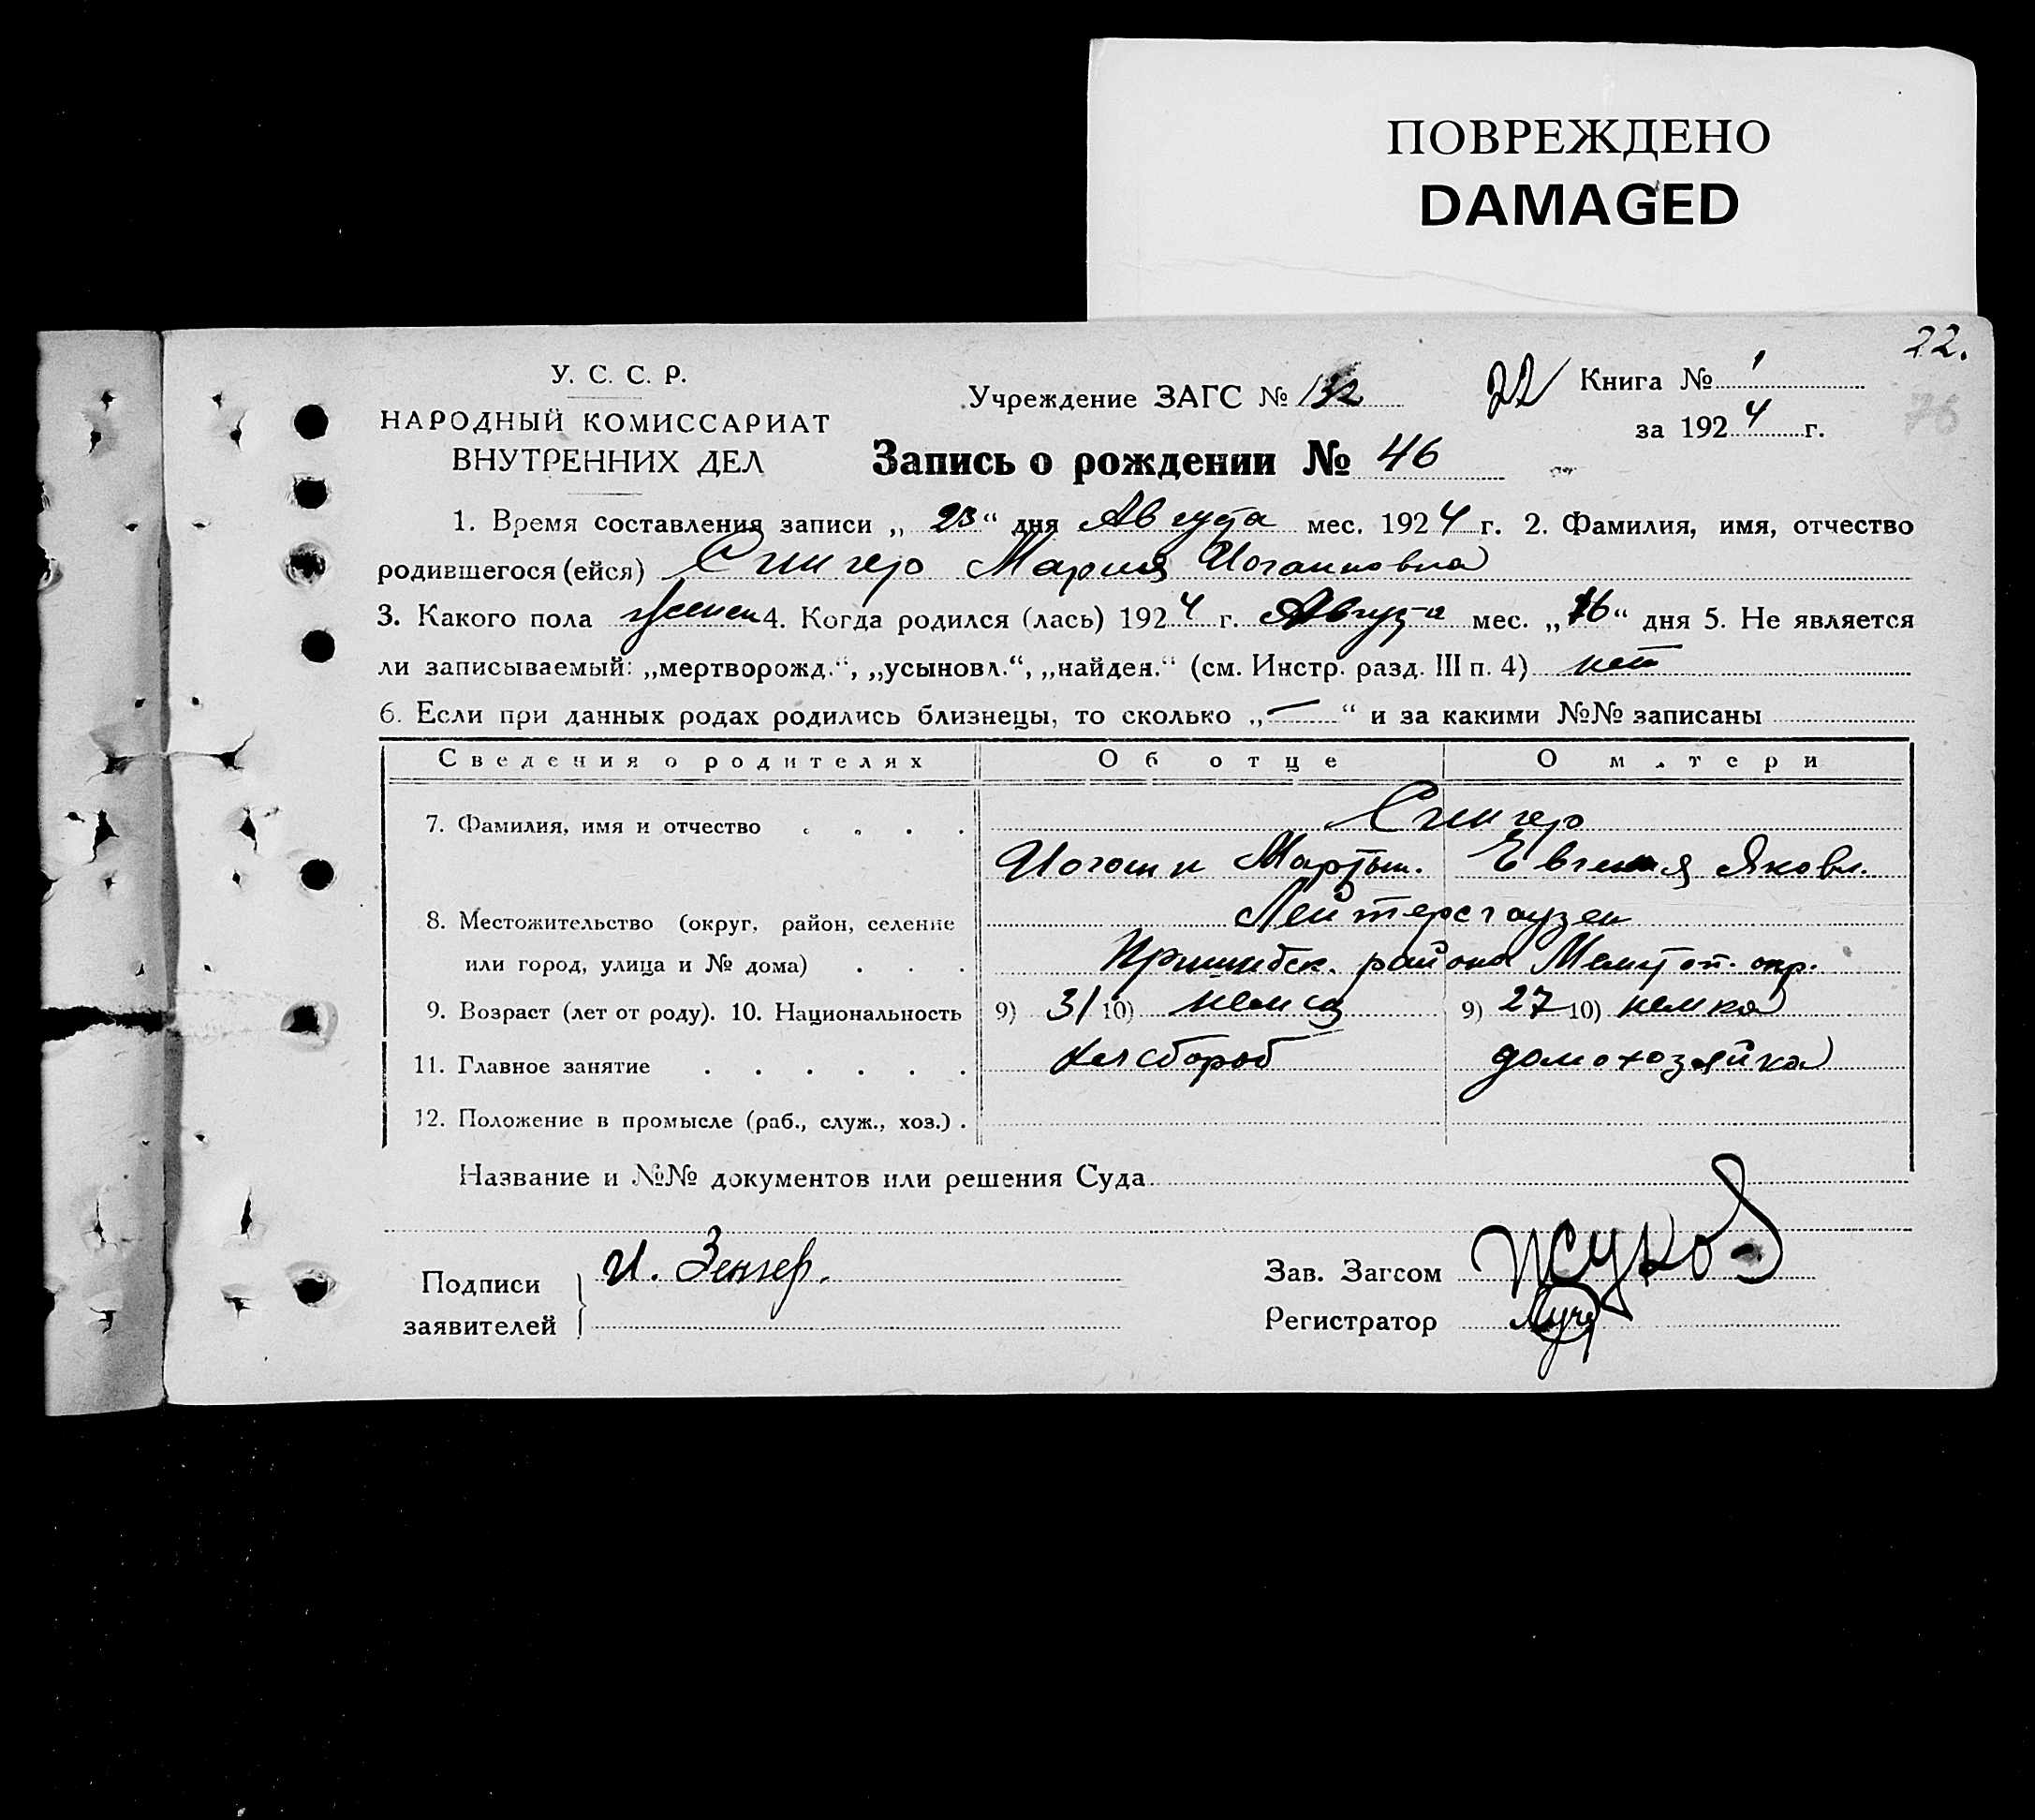 ПОВРЕЖДЕНО
DAMAGED
22.
У. С. С. Р.
НАРОДНЫЙ КОМИССАРИАТ
ВНУТРЕННИХ ДЕЛ
Учреждение ЗАГС № 132
22
Книга № 1
76
за 1924 г.
Запись о рождении № 46
1. Время составления записи „23“ дня Августа мес. 1924 г. 2. Фамилия, имя, отчество
родившегося (ейся) Сингер Мария Иоганновна
3. Какого пола женск 4. Когда родился (лась) 1924 г. Августа мес. „16“ дня 5. Не является
ли записываемый: „мертворожд.“, „усыновл.“, „найден.“ (см. Инстр. разд. III п. 4) нет
6. Если при данных родах родились близнецы, то сколько „—“ и за какими №№ записаны
Сведения о родителях Об отце О матери
7. Фамилия, имя и отчество . . . . Сингер
Иоганн Мартын. Евгения Яковл.
8. Местожительство (округ, район, селение Лейтерсгаузен
или город, улица и № дома) . . . Пришибск. района Мелитоп. окр.
9. Возраст (лет от роду). 10. Национальность 9) 31 10) немец 9) 27 10) немка
11. Главное занятие . . . . . . хлебороб домохозяйка
12. Положение в промысле (раб., служ., хоз.) .
Название и №№ документов или решения Суда
Подписи заявителей И. Зенгер.
Зав. Загсом Жуков
Регистратор